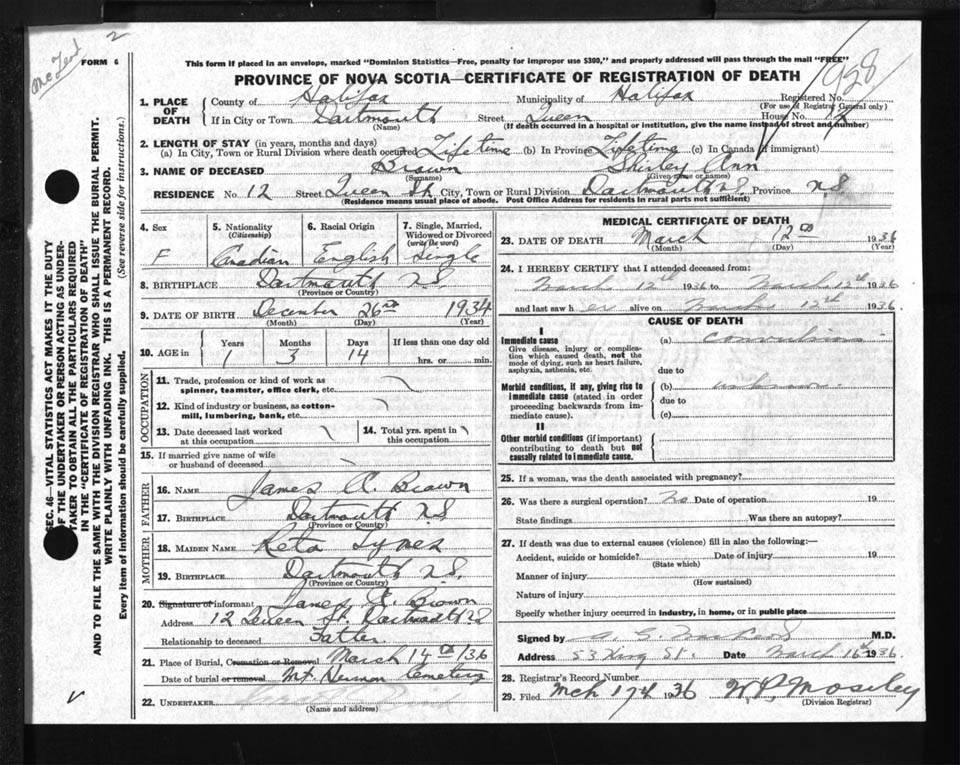 McLeod
2
FORM 6
This form if placed in an envelope, marked "Dominion Statistics—Free, penalty for improper use $300," and properly addressed will pass through the mail "FREE"
PROVINCE OF NOVA SCOTIA—CERTIFICATE OF REGISTRATION OF DEATH
928
1. PLACE OF DEATH
County of Halifax Municipality of Halifax Registered No.
(For use of Registrar General only)
If in City or Town Dartmouth Street Queen House No. 12
(Name) (If death occurred in a hospital or institution, give the name instead of street and number)
2. LENGTH OF STAY (in years, months and days)
(a) In City, Town or Rural Division where death occurred Lifetime (b) In Province Lifetime (c) In Canada (if immigrant)
3. NAME OF DECEASED Brown Shirley Ann
(Surname) (Given name or names)
RESIDENCE No. 12 Street Queen St. City, Town or Rural Division Dartmouth N.S. Province N.S
(Residence means usual place of abode. Post Office Address for residents in rural parts not sufficient)
4. Sex
F
5. Nationality
(Citizenship)
Canadian
6. Racial Origin
English
7. Single, Married, Widowed or Divorced
(write the word)
Single
8. BIRTHPLACE Dartmouth N.S
(Province or Country)
9. DATE OF BIRTH December 26th 1934
(Month) (Day) (Year)
10. AGE in
Years Months Days If less than one day old
1 3 14 hrs. or min.
OCCUPATION
11. Trade, profession or kind of work as
spinner, teamster, office clerk, etc.
12. Kind of industry or business, as cotton-
mill, lumbering, bank, etc.
13. Date deceased last worked
at this occupation
14. Total yrs. spent in
this occupation
15. If married give name of wife
or husband of deceased
FATHER
16. NAME James A. Brown
17. BIRTHPLACE Dartmouth N.S
(Province or Country)
MOTHER
18. MAIDEN NAME Reta Synes
19. BIRTHPLACE Dartmouth N.S.
(Province or Country)
20. Signature of informant James A. Brown
Address 12 Queen St. Dartmouth N.S
Relationship to deceased Father
21. Place of Burial, Cremation or Removal March 14th /36
Date of burial or removal Mt. Hermon Cemetery
22. UNDERTAKER
(Name and address)
MEDICAL CERTIFICATE OF DEATH
23. DATE OF DEATH March 12th 1936
(Month) (Day) (Year)
24. I HEREBY CERTIFY that I attended deceased from:
March 12th 1936 to March 12th 1936
and last saw h er alive on March 12th 1936
CAUSE OF DEATH
I
Immediate cause
Give disease, injury or complication which caused death, not the mode of dying, such as heart failure, asphyxia, asthenia, etc.
(a) convulsions
due to
Morbid conditions, if any, giving rise to immediate cause (stated in order proceeding backwards from immediate cause).
(b) unknown
due to
(c)
II
Other morbid conditions (if important) contributing to death but not causally related to immediate cause.
25. If a woman, was the death associated with pregnancy?
26. Was there a surgical operation? no Date of operation 19
State findings Was there an autopsy?
27. If death was due to external causes (violence) fill in also the following:—
Accident, suicide or homicide? Date of injury 19
(State which)
Manner of injury
(How sustained)
Nature of injury
Specify whether injury occurred in industry, in home, or in public place
Signed by M.D.
Address 53 King St. Date March 16th 1936.
28. Registrar's Record Number
29. Filed Mch 17th 1936 W.P. Moseley
(Division Registrar)
SEC. 46—VITAL STATISTICS ACT MAKES IT THE DUTY
OF THE UNDERTAKER OR PERSON ACTING AS UNDER-
TAKER TO OBTAIN ALL THE PARTICULARS REQUIRED
IN THE "CERTIFICATE OF REGISTRATION OF DEATH"
AND TO FILE THE SAME WITH THE DIVISION REGISTRAR WHO SHALL ISSUE THE BURIAL PERMIT.
WRITE PLAINLY WITH UNFADING INK. THIS IS A PERMANENT RECORD.
Every item of information should be carefully supplied. (See reverse side for instructions.)